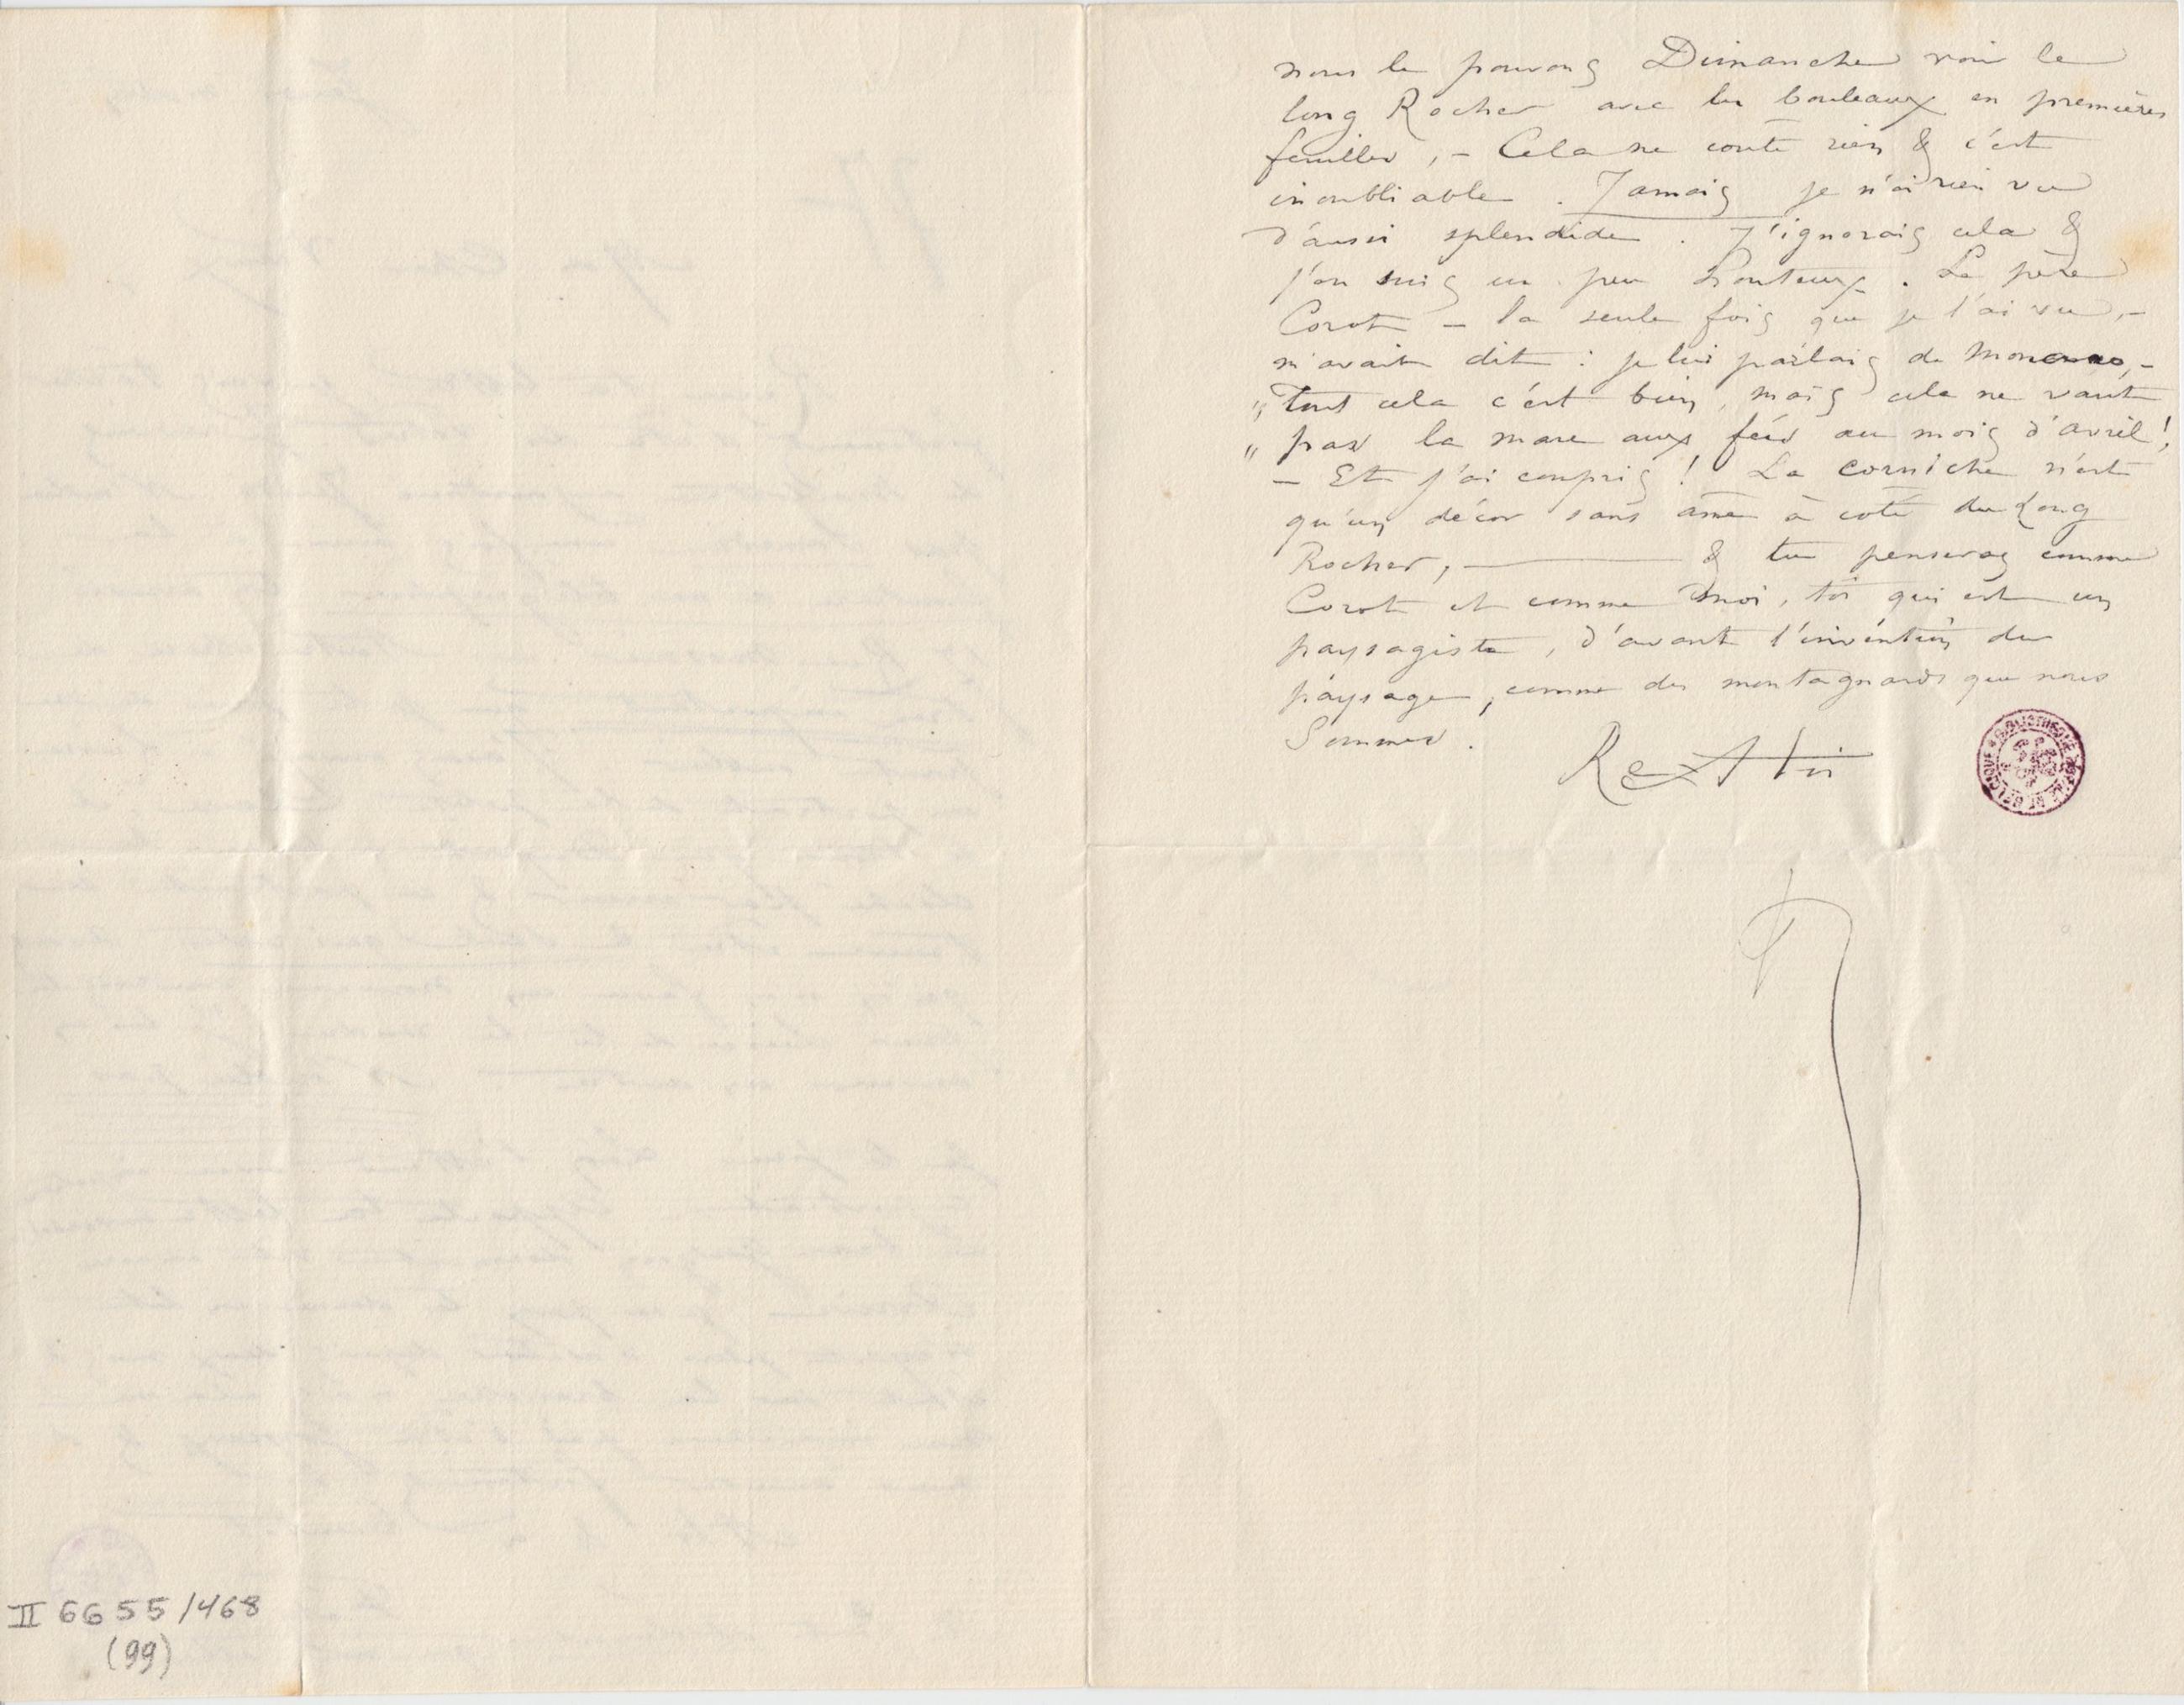 nous le pouvons Dimanche voir le
long Rocher avec les bouleaux en premières
feuilles, – Cela ne coute rien & c'est
inoubliable. Jamais je n'ai rien vu
d'aussi splendide. J'ignorais cela &
j'en suis un peu honteux. Le père
Corot – la seule fois que je l'ai vu, –
m'avait dit : je lui parlais de Monaco, –
„ Tout cela c'est bien, mais cela ne vaut
„ pas la mare aux fées au mois d'avril !
– Et j'ai compris ! La corniche n'est
qu'un décor sans âme à coté du Long
Rocher, ——— & tu penseras comme
Corot et comme moi, toi qui est un
paysagiste, d'avant l'invention du
paysage, comme des montagnards que nous
Sommes.
BIBLIOTHEQUE ROYALE DE BELGIQUE
II 6655/468
(99)